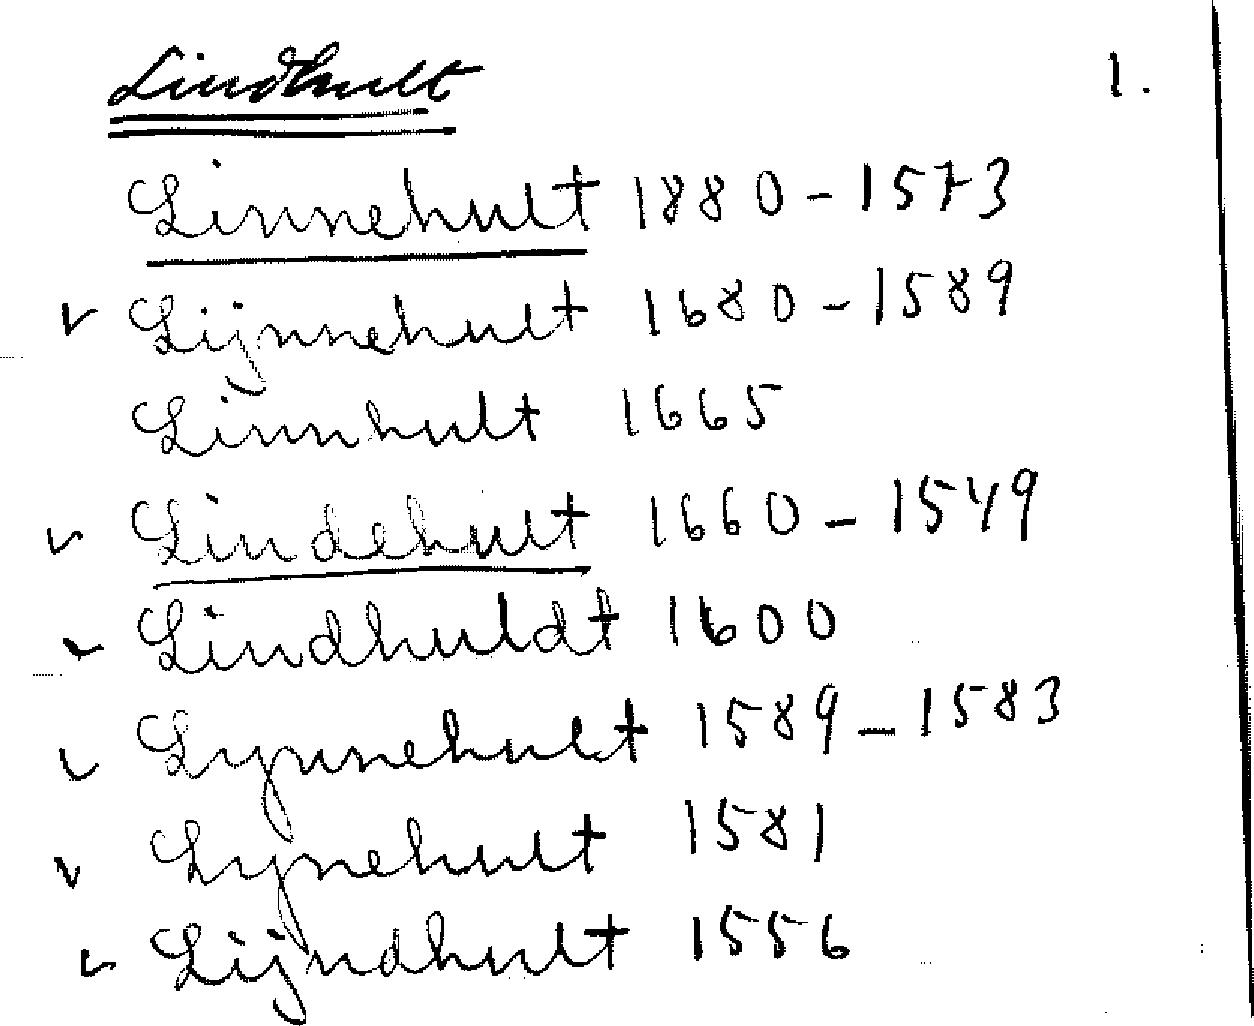 Lindhult 1.
Linnehult 1880 - 1573
v Lijnnehult 1680 - 1589
Linnhult 1665
v Lindehult 1660 - 1549
v Lindhuldt 1600
v Lynnehult 1589 - 1583
v Lynehult 1581
v Lijndhult 1556